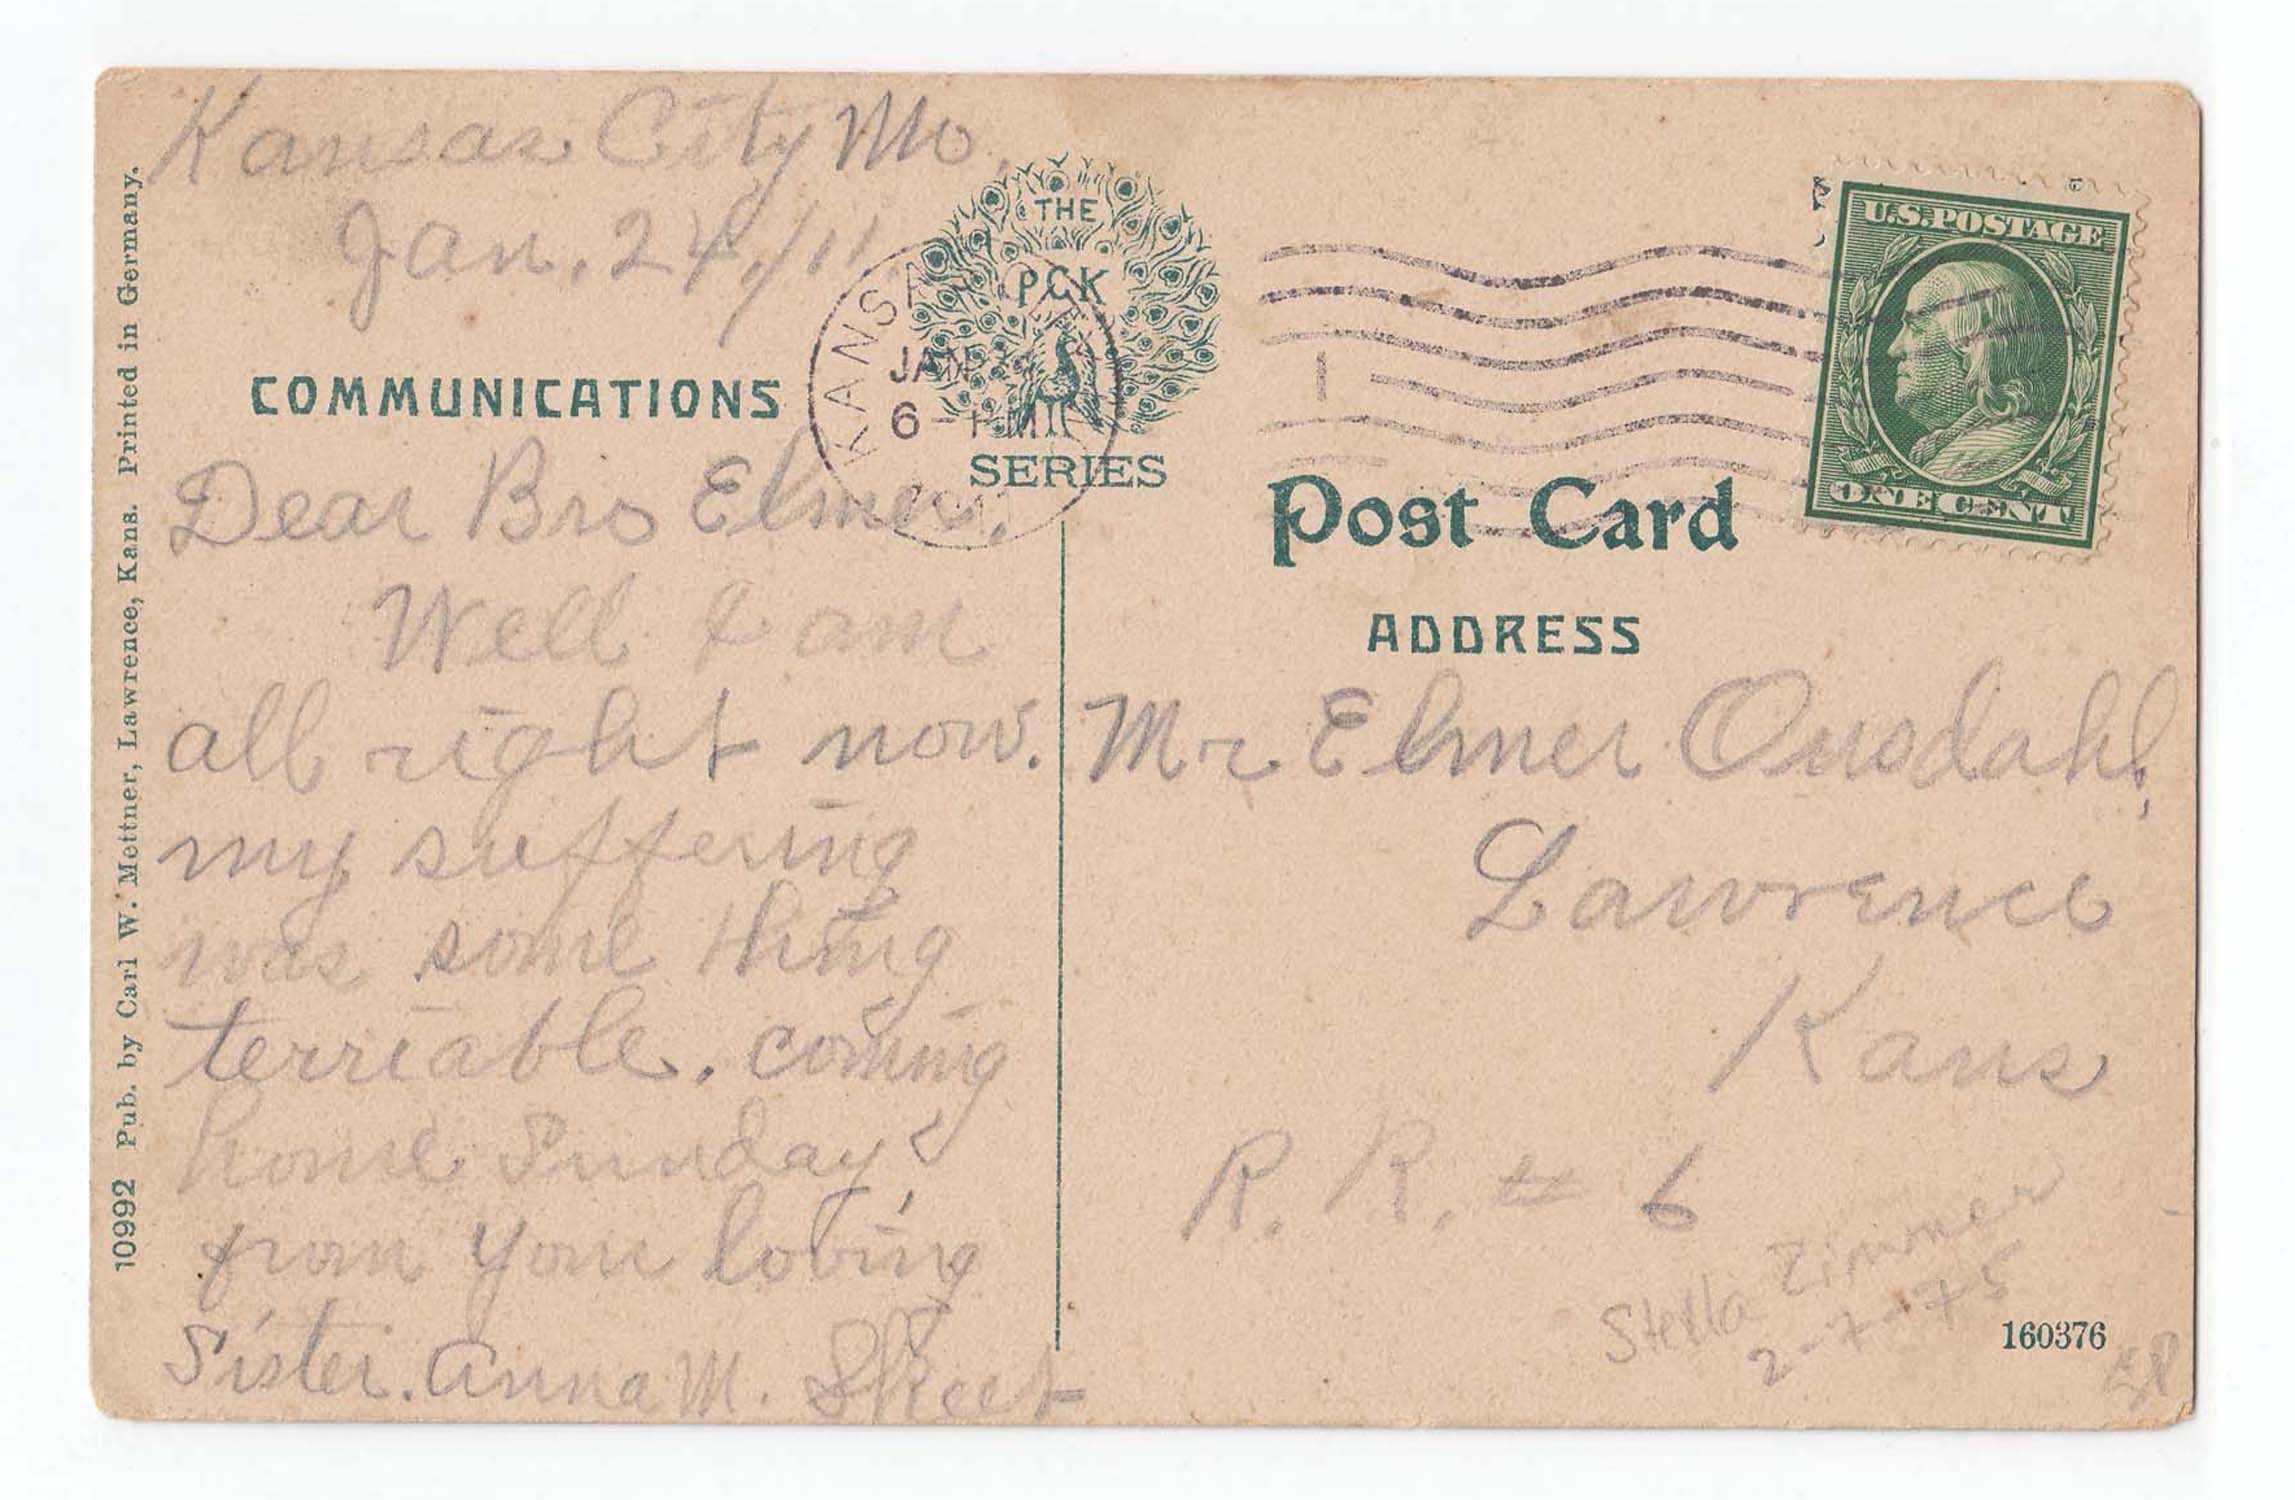 Kansas City Mo.
Jan. 24, /11.
COMMUNICATIONS
Dear Bro Elmer.
Well I am
all right now.
my suffering
was some thing
terriable. coming
home Sunday
from your loving
Sister. Anna M. Skeet
10992 Pub. by Carl W. Mettner, Lawrence, Kans. Printed in Germany.
THE
PCK
SERIES
KANSAS
JAN 24
6-PM
U.S. POSTAGE
ONE CENT
1
Post Card
ADDRESS
Mr Elmer Ousdahl,
Lawrence
Kans
R. R. # 6
Stella Zimmer
2-7-75
160376